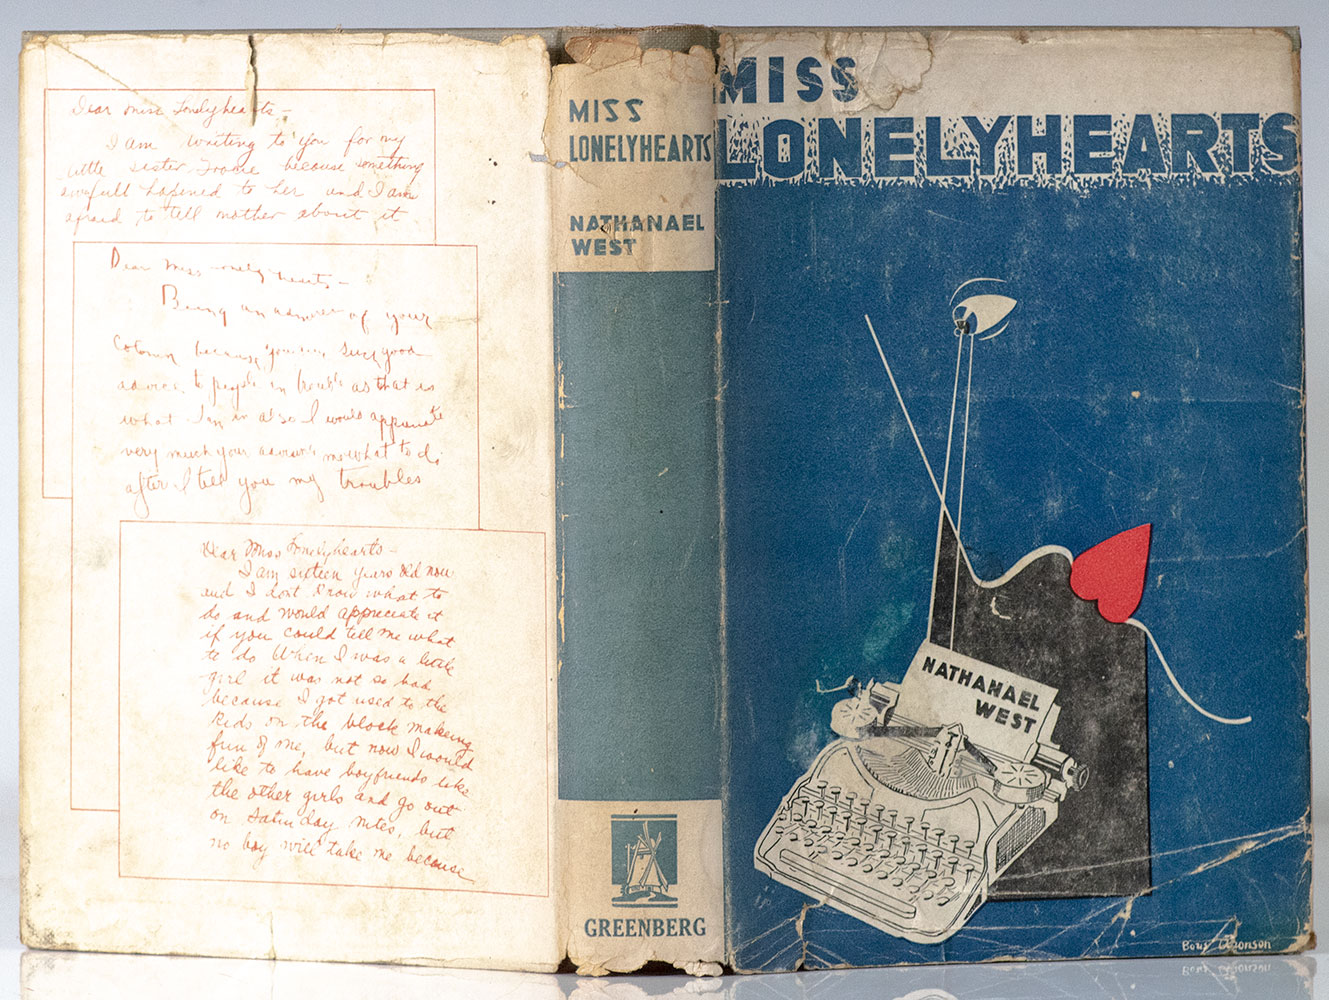 Dear Miss Lonelyhearts —
I am writing to you for my
little sister because something
awfull hapened to her and I am
afraid to tell mother about it
Dear Miss onely hearts —
Being an admirer of your
column because you such good
advice to people in trouble as that is
what I am in also I would appreciate
very much your what to do
after I tell you my troubles
Dear Miss Lonelyhearts —
I am sixteen years old now
and I dont know what to
do and would appreciate it
if you could tell me what
to do When I was a little
girl it was not so bad
because I got used to the
kids on the block makeing
fun of me, but now I would
like to have boyfriends like
the other girls and go out
on Saturday nites, but
no boy will take me because
MISS
LONELYHEARTS
NATHANAEL
WEST
GREENBERG
MISS
LONELYHEARTS
NATHANAEL
WEST
Boris Aronson